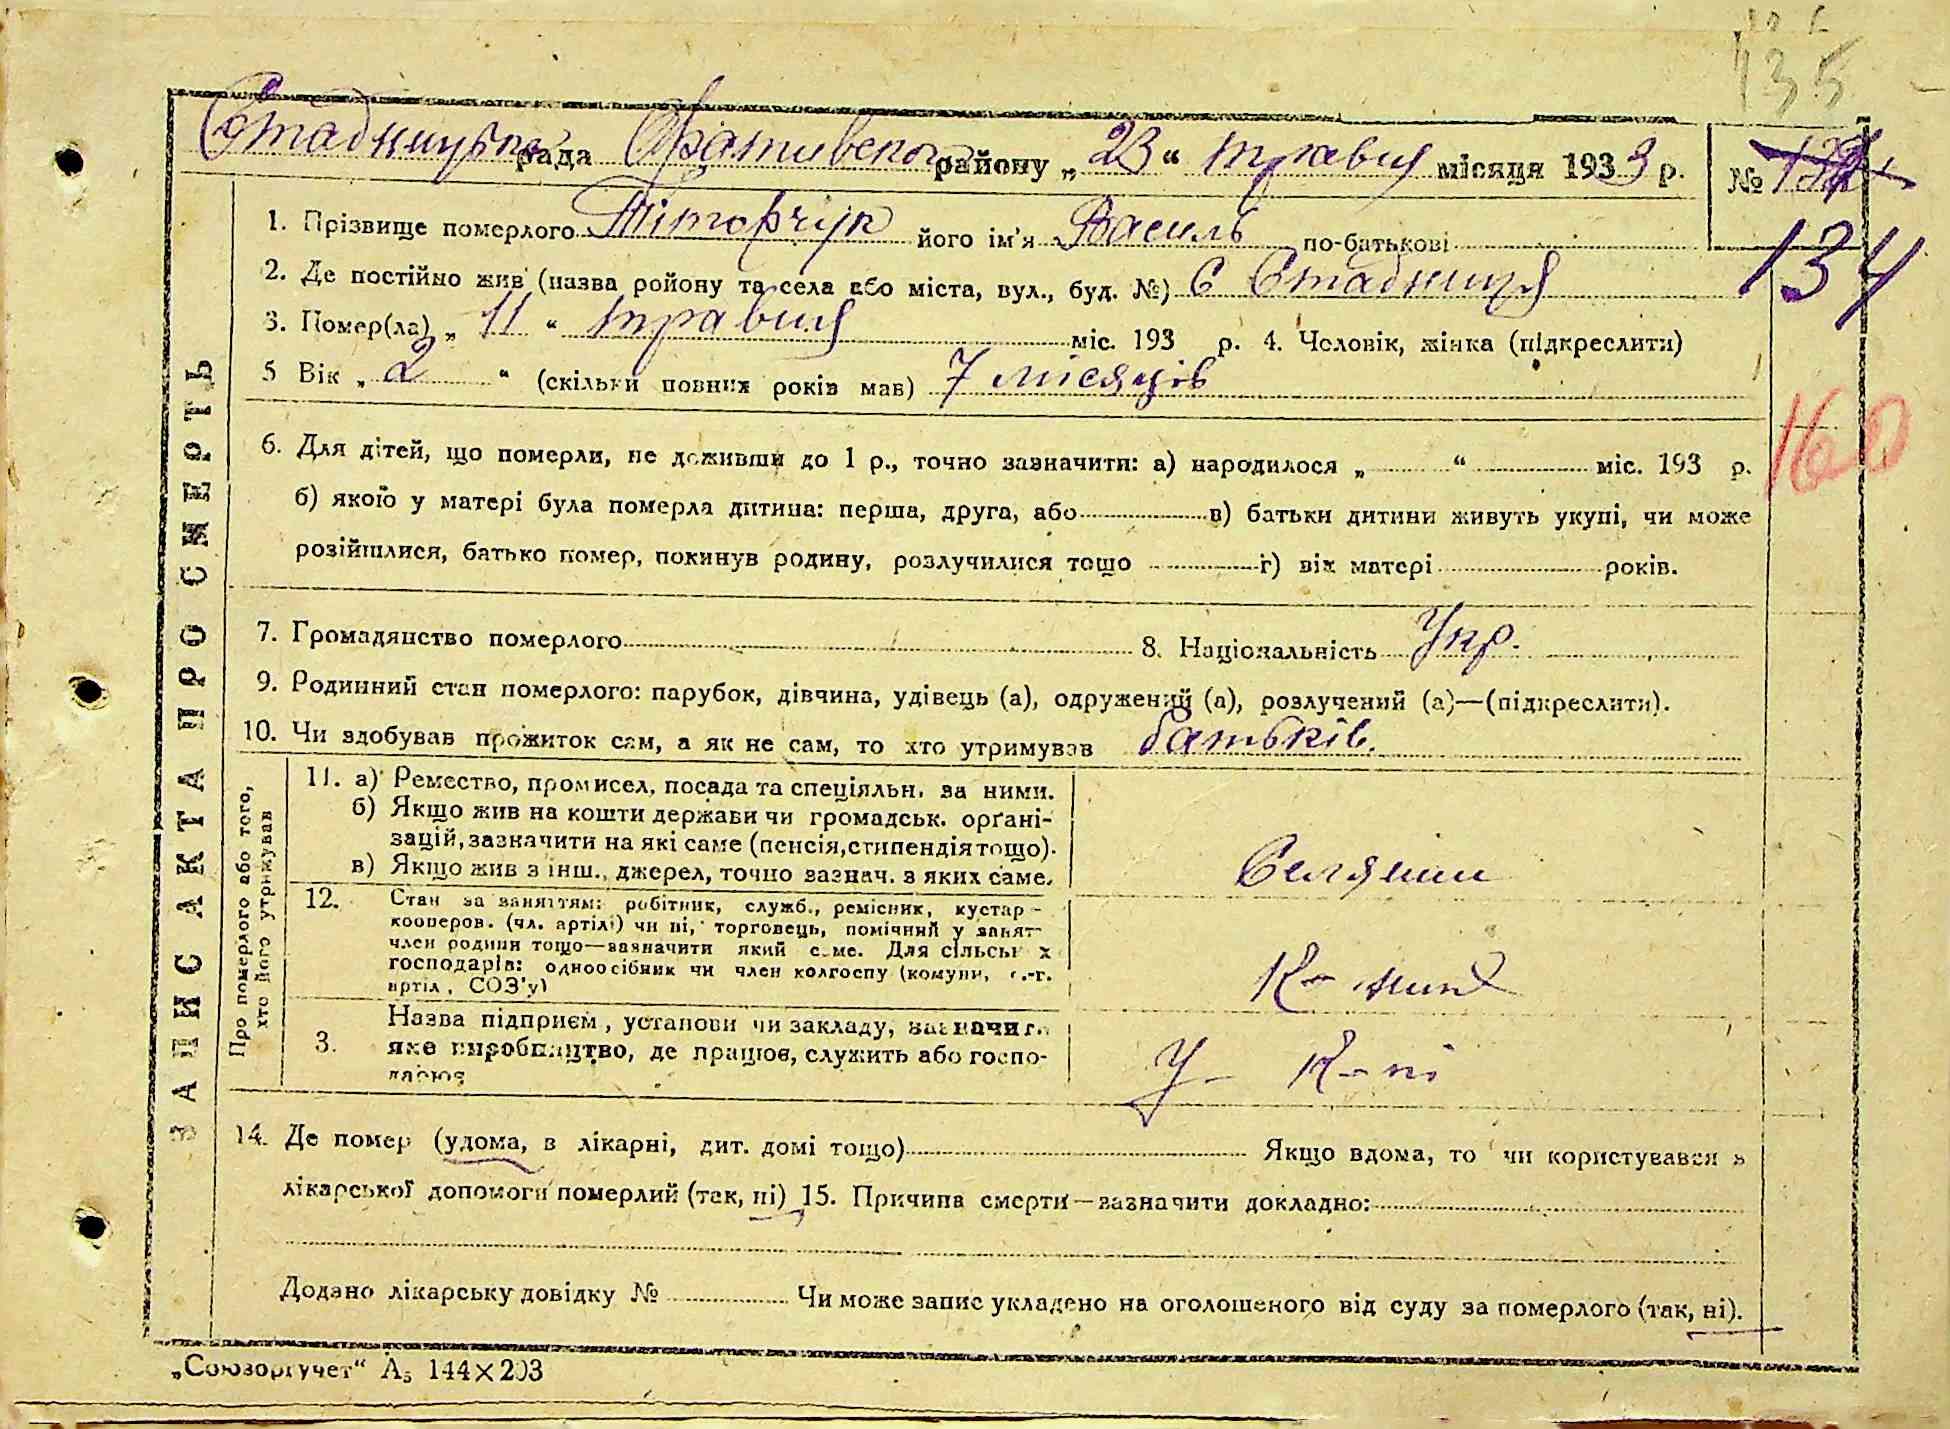 135
Стадницька рада Оратівського району „ 23 “ травня місяця 1933 р.
№
134
1. Прізвище померлого Тіторчук його ім'я Василь по-батькові
2. Де постійно жив (назва ройону та села або міста, вул., буд. №) С Стадниця
3. Помер(ла) „ 11 “ травня міс. 193 р. 4. Чоловік, жінка (підкреслити)
5 Вік „ 2 “ (скільки повних років мав) 7 місяців
160
6. Для дітей, що померли, не доживши до 1 р., точно зазначити: а) народилося „ “ міс. 193 р.
б) якою у матері була померла дитина: перша, друга, або в) батьки дитини живуть укупі, чи може
розійшлися, батько помер, покинув родину, розлучилися тощо г) вік матері років.
7. Громадянство померлого 8. Національність Укр.
9. Родинний стан померлого: парубок, дівчина, удівець (а), одружений (а), розлучений (а)—(підкреслити).
10. Чи здобував прожиток сам, а як не сам, то хто утримував батьків.
Про померлого або того,
хто його утримував
11. а) Ремество, промисел, посада та спеціяльн. за ними.
б) Якщо жив на кошти держави чи громадськ. орґані-
зацій, зазначити на які саме (пенсія, стипендія тощо).
в) Якщо жив з інш., джерел, точно зазнач. з яких саме.
Селянин
12. Стан за заняттям: робітник, служб., ремісник, кустар-
кооперов. (чл. артілі) чи ні, торговець, помічний у занят-
член родини тощо—зазначити який саме. Для сільськ х
господарів: одноосібник чи член колгоспу (комуни, с.-г.
артіл, СОЗ'у)
К-ник
3. Назва підприєм, установи чи закладу, зазначити
яке виробництво, де працює, служить або госпо-
дарює
У К-пі
14. Де помер (удома, в лікарні, дит. домі тощо) Якщо вдома, то чи користувався з
лікарської допомоги померлий (так, ні) 15. Причина смерти—зазначити докладно:
Додано лікарську довідку № Чи може запис укладено на оголошеного від суду за померлого (так, ні).
ЗАПИС АКТА ПРО СМЕРТЬ
„Союзоргучет“ А₅ 144×203